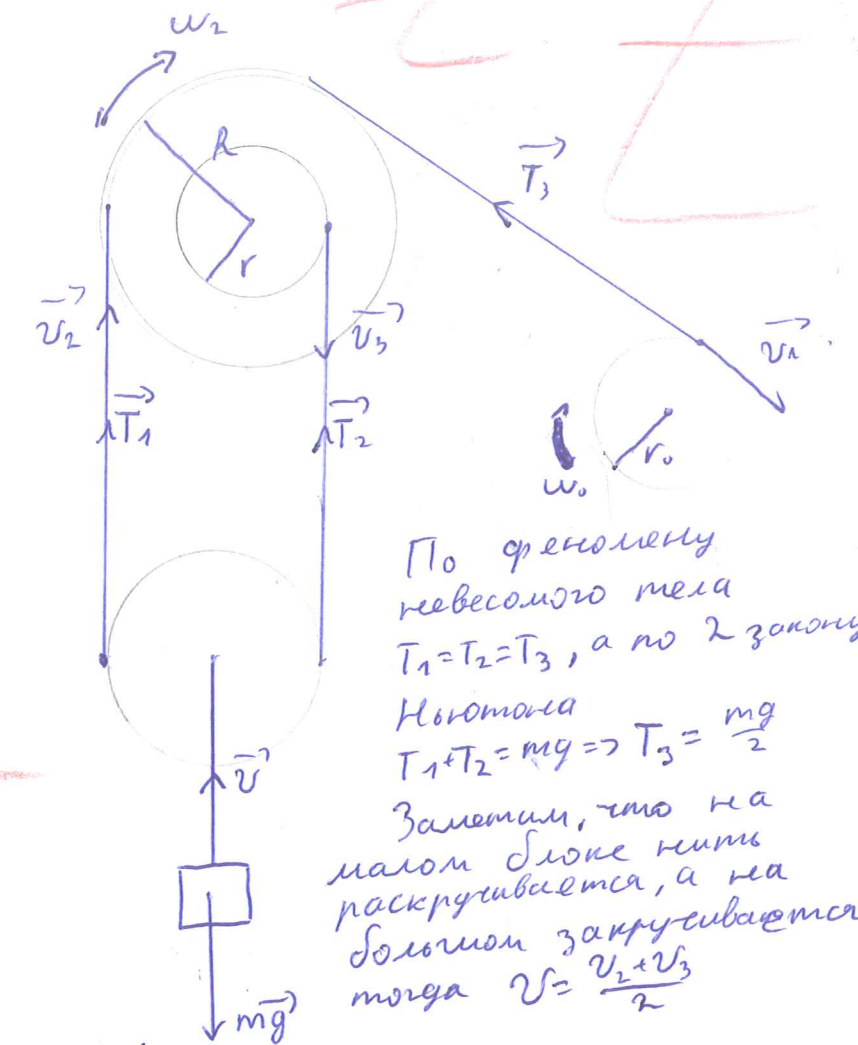 ω₂
R
r
T₃
v₂
v₃
v₁
T₁
T₂
r₀
ω₀
По феномену
невесомого тела
T₁=T₂=T₃, а по 2 закону
Ньютона
T₁+T₂=mg=>T₃=mg/2
v
Заметим, что на
малом блоке нить
раскручивается, а на
большом закручивается
тогда v=(v₂+v₃)/2
mg